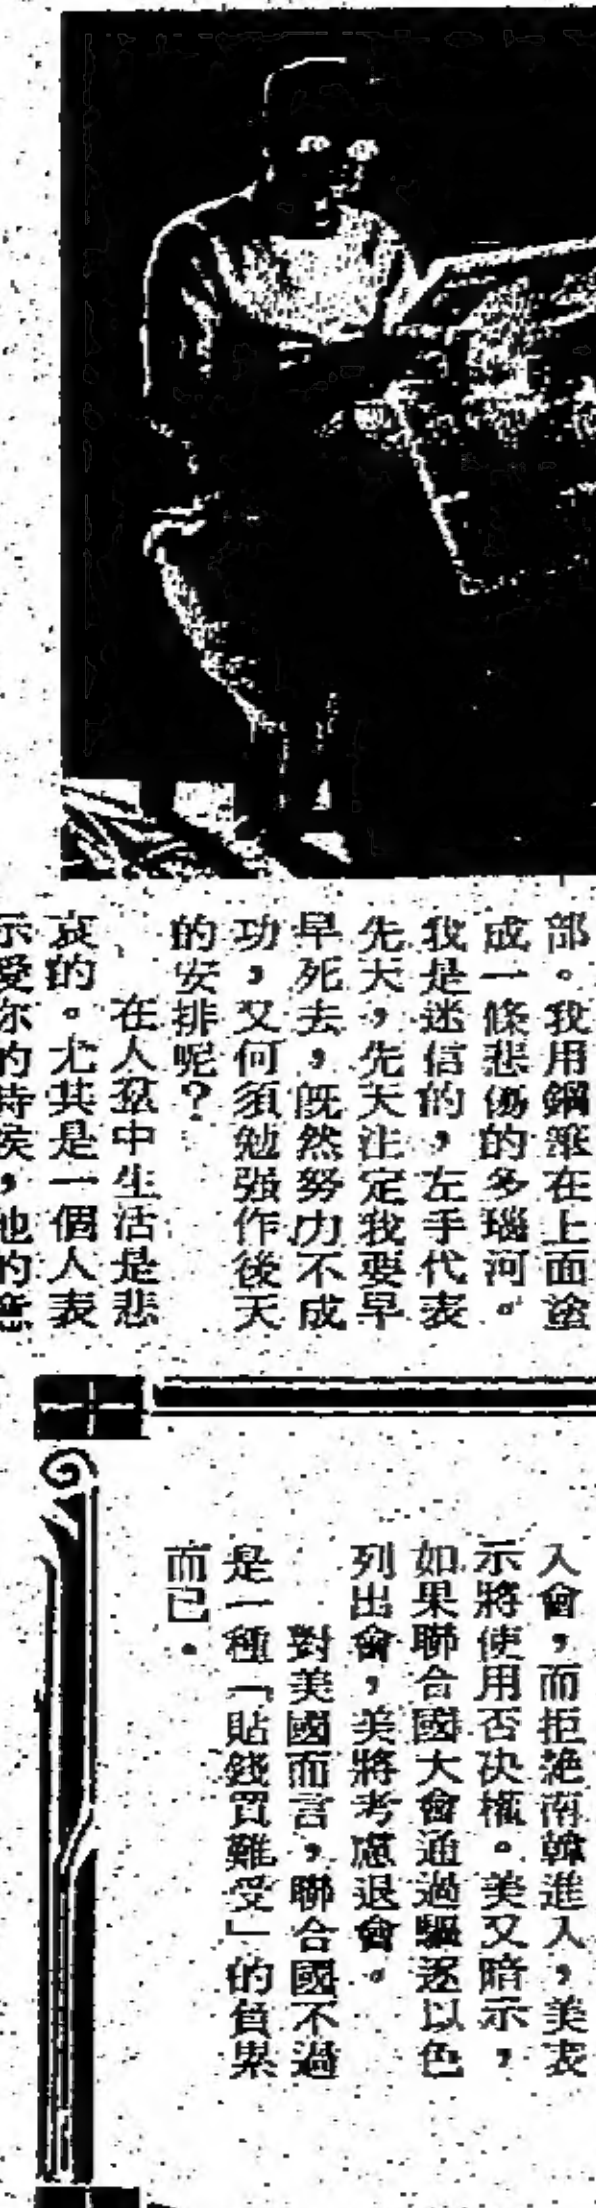 部。我用鋼筆在上面塗
成一條悲傷的多瑙河。
我是迷信的，左手代表
先天，先天注定我要早
早死去，既然努力不成
功，又何須勉强作後天
的安排呢？
在人羣中生活是悲
哀的。尤其是一個人表
示愛你的時候，他的意
入會，而拒絶南韓進入，美表
示將使用否決權。美又暗示，
如果聯合國大會通過驅逐以色
列出會，美將考慮退會。
對美國而言，聯合國不過
是一種「貼錢買難受」的負累
而已。